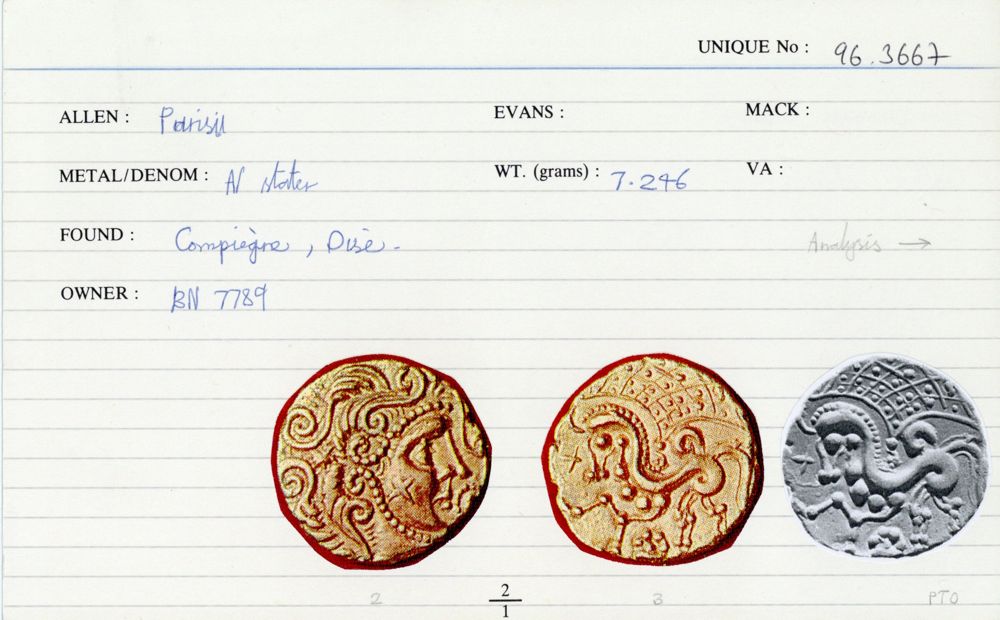 UNIQUE No : 96.3667
ALLEN : Parisii EVANS : MACK :
METAL/DENOM : AV stater WT. (grams) : 7.246 VA :
FOUND : Compiègne, Oise. Analysis →
OWNER : BN 7789
2 2/1 3 PTO